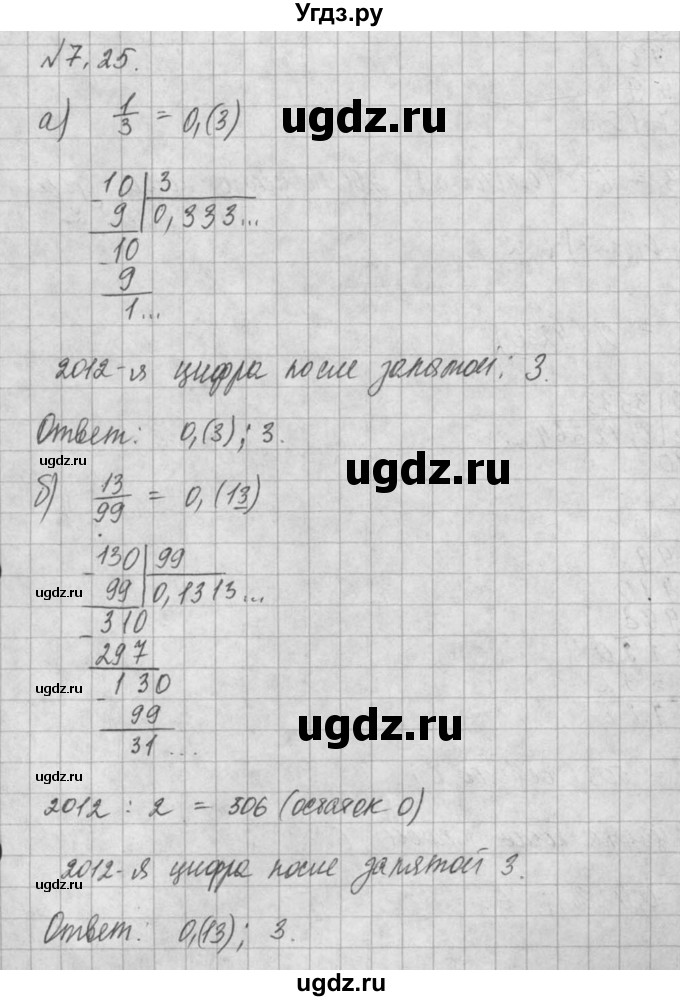 Угдз.ру
№7,25.
а) 1/3 = 0,(3)
ugdz.ru
-10 | 3
9 | 0,333...
-10
9
1...
2012-я цифра после запятой: 3.
Ответ: 0,(3); 3.
ugdz.ru
ugdz.ru
б) 13/99 = 0,(13)
-130 | 99
99 | 0,1313...
ugdz.ru
-310
297
ugdz.ru
-130
99
ugdz.ru
31...
ugdz.ru
2012 : 2 = 306 (остаток 0)
2012-я цифра после запятой 3.
ugdz.ru
Ответ: 0,(13); 3.
ugdz.ru